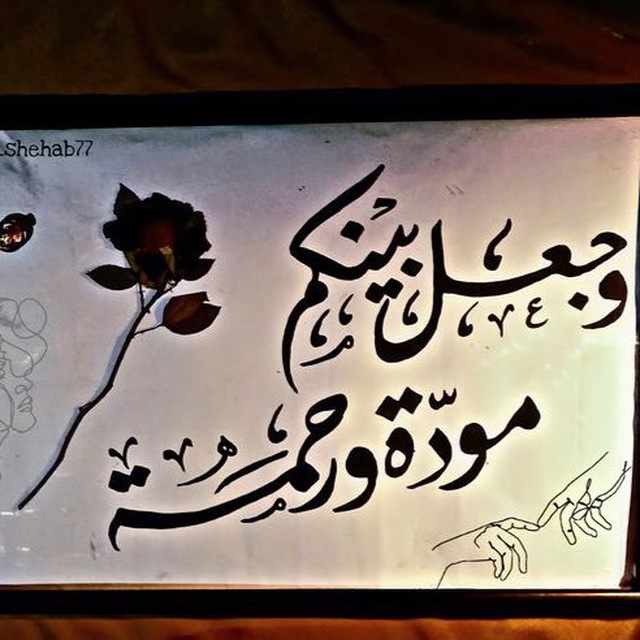 .shehab77
وجعل بينكم
مودّة ورحمة